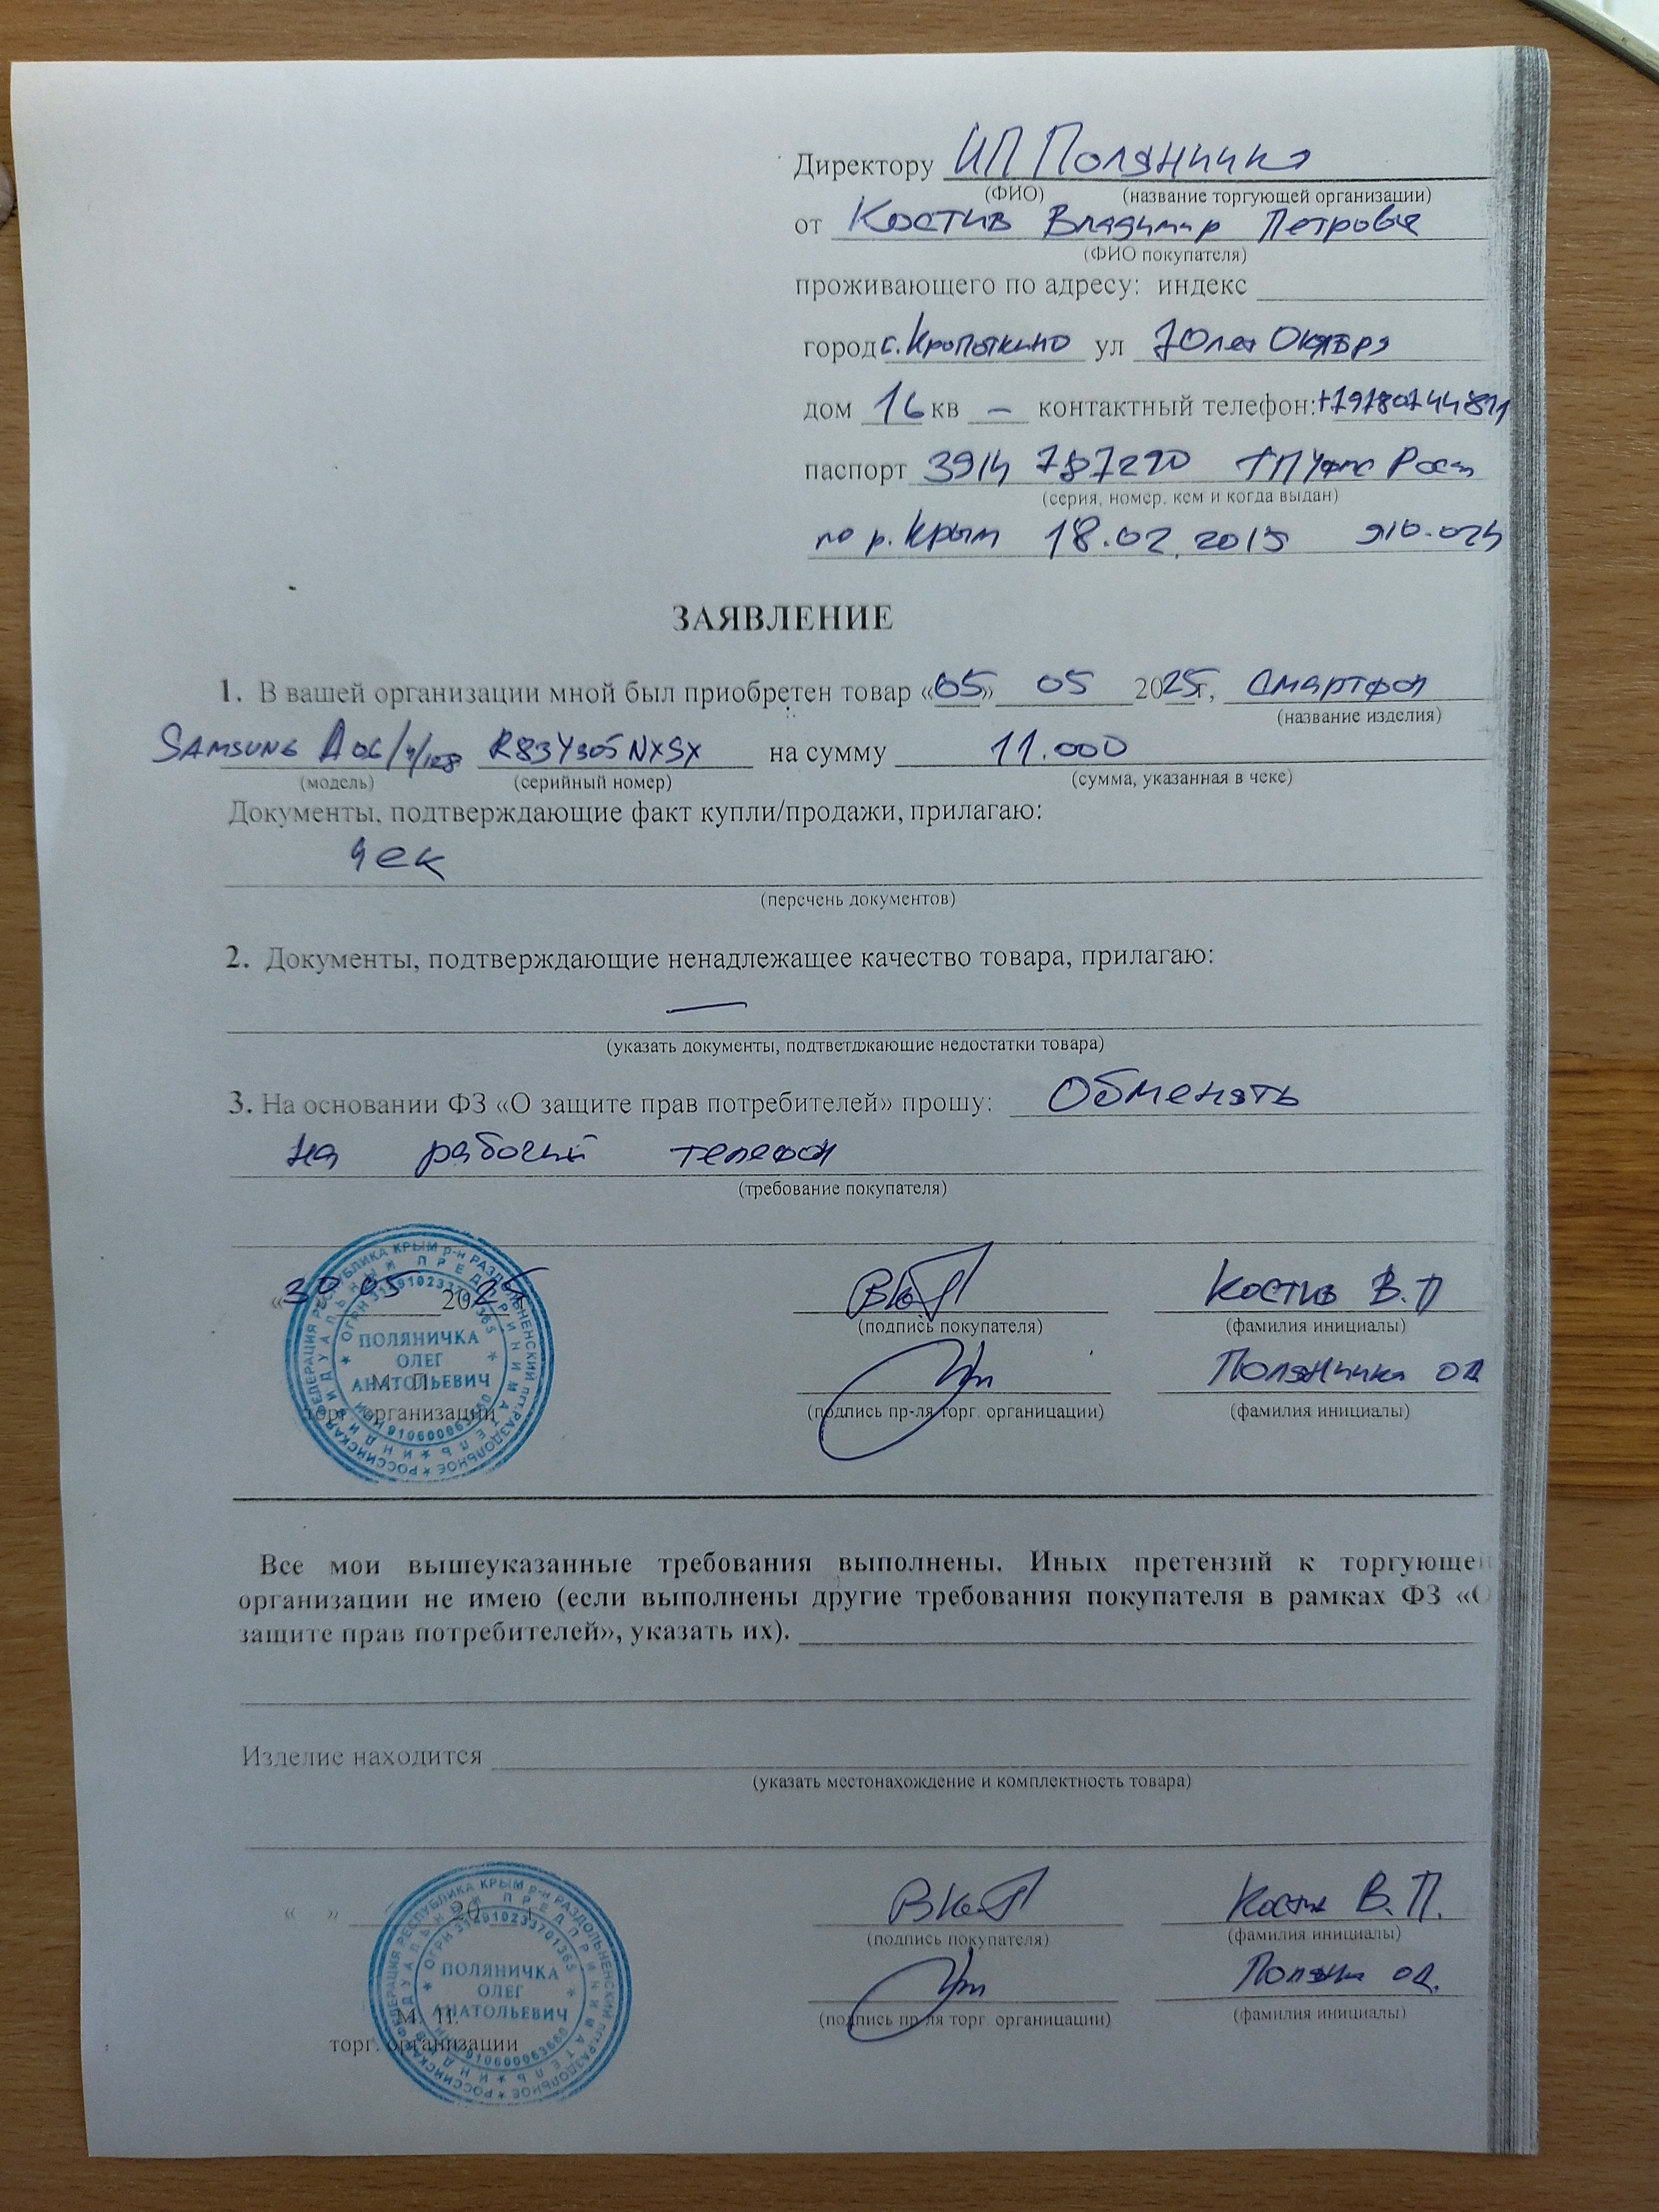 Директору ИП Поляничка
(ФИО) (название торгующей организации)
от Костив Владимир Петрович
(ФИО покупателя)
проживающего по адресу: индекс
город с. Кропоткино ул 70 лет Октября
дом 16 кв — контактный телефон:
паспорт 3914 787290 ТП Уфмс Росси
(серия, номер, кем и когда выдан)
по р. Крым 18.02.2015 910-024
ЗАЯВЛЕНИЕ
1. В вашей организации мной был приобретен товар «05» 05 2025г, Смартфон
(название изделия)
SAMSUNG A06/4/128 R83Y305NXSX на сумму 11.000
(модель) (серийный номер) (сумма, указанная в чеке)
Документы, подтверждающие факт купли/продажи, прилагаю:
чек
(перечень документов)
2. Документы, подтверждающие ненадлежащее качество товара, прилагаю:
—
(указать документы, подтветджающие недостатки товара)
3. На основании ФЗ «О защите прав потребителей» прошу: Обменять
на рабочий телефон
(требование покупателя)
«30 05 2025
(подпись покупателя) Костив В.П
(фамилия инициалы)
Поляничка ОА
(подпись пр-ля торг. органицации) (фамилия инициалы)
М. П.
торг. организации
РОССИЙСКАЯ ФЕДЕРАЦИЯ РЕСПУБЛИКА КРЫМ р-н РАЗДОЛЬНЕНСКИЙ пгт.РАЗДОЛЬНОЕ
ИНДИВИДУАЛЬНЫЙ ПРЕДПРИНИМАТЕЛЬ
ПОЛЯНИЧКА
ОЛЕГ
АНАТОЛЬЕВИЧ
Все мои вышеуказанные требования выполнены. Иных претензий к торгующей
организации не имею (если выполнены другие требования покупателя в рамках ФЗ «О
защите прав потребителей», указать их).
Изделие находится
(указать местонахождение и комплектность товара)
« » 20 г
Костив В.П.
(подпись покупателя) (фамилия инициалы)
ОА.
(подпись пр-ля торг. органицации) (фамилия инициалы)
М. П.
торг. организации
РОССИЙСКАЯ ФЕДЕРАЦИЯ РЕСПУБЛИКА КРЫМ р-н РАЗДОЛЬНЕНСКИЙ пгт.РАЗДОЛЬНОЕ
ИНДИВИДУАЛЬНЫЙ ПРЕДПРИНИМАТЕЛЬ
ОГРН 314910233701365
ПОЛЯНИЧКА
ОЛЕГ
АНАТОЛЬЕВИЧ